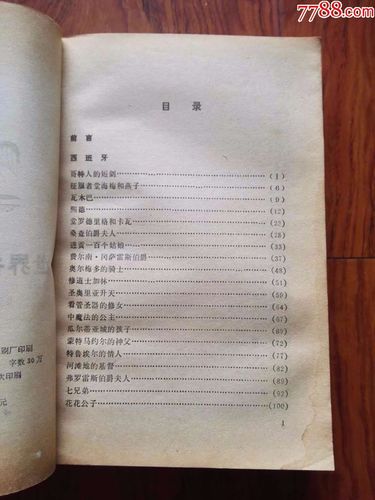 7788.com
目录
前言
西班牙
哥特人的短剑 (1)
征服者堂海梅和燕子 (6)
瓦木巴 (9)
熙德 (12)
堂罗德里格和卡瓦 (23)
桑查伯爵夫人 (28)
进贡一百个姑娘 (33)
费尔南·冈萨雷斯伯爵 (37)
奥尔梅多的骑士 (48)
修道士加林 (51)
圣奥里亚升天 (57)
看管圣器的修女 (58)
中魔法的公主 (64)
瓜尔蒂亚城的孩子 (69)
蒙特马约尔的神父 (72)
特鲁埃尔的情人 (77)
河滩地的基督 (82)
弗罗雷斯伯爵夫人 (89)
七兄弟 (92)
花花公子 (100)
1
世界
字数30万